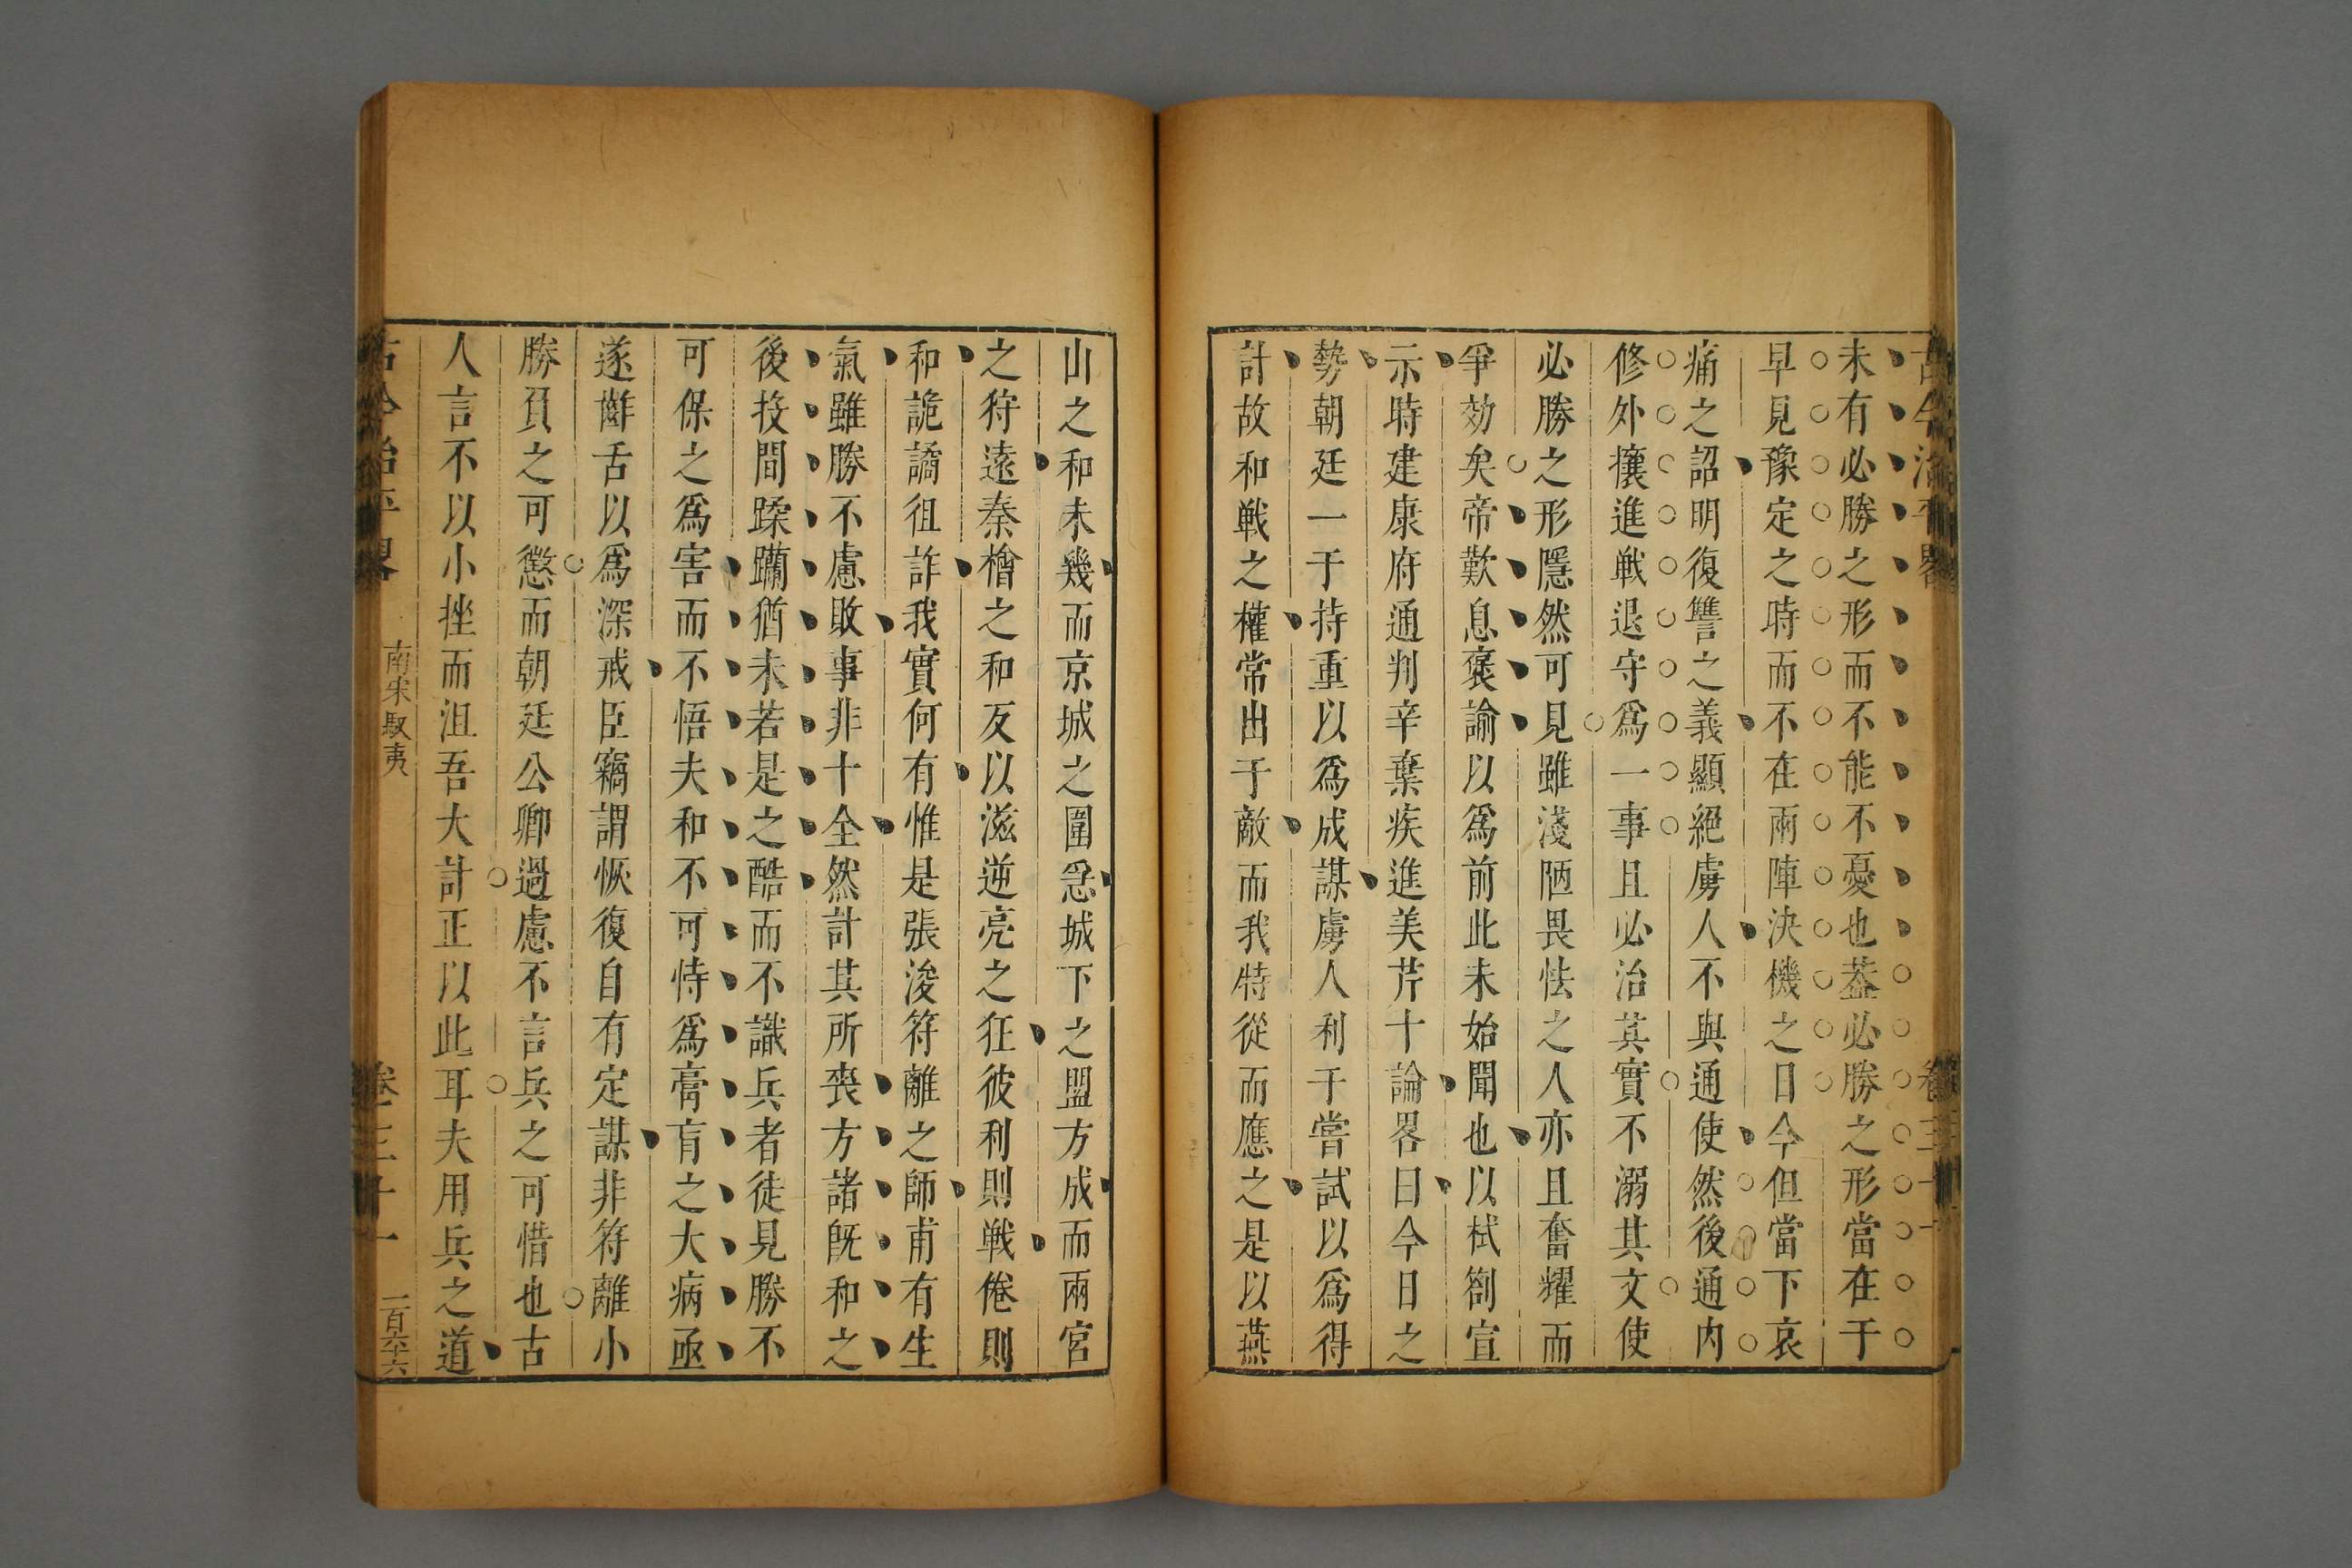 古今治平畧 卷三十一
未有必勝之形而不能不憂也葢必勝之形當在于
早見豫定之時而不在兩陣決機之日今但當下哀
痛之詔明復讐之義顯絕虜人不與通使然後通内
修外攘進戦退守爲一事且必治其實不溺其文使
必勝之形隱然可見雖淺陋畏怯之人亦且奮耀而
爭効矣帝歎息褒諭以爲前此未始聞也以栻劄宣
示時建康府通判辛棄疾進美芹十論畧曰今日之
勢朝廷一于持重以爲成謀虜人利于嘗試以爲得
計故和戦之權常出于敵而我特從而應之是以燕
山之和未幾而京城之圍急城下之盟方成而兩宮
之狩遠秦檜之和反以滋逆亮之狂彼利則戦倦則
和詭譎狙詐我實何有惟是張浚符離之師甫有生
氣雖勝不慮敗事非十全然計其所喪方諸旣和之
後投間蹂躪猶未若是之酷而不識兵者徒見勝不
可保之爲害而不悟夫和不可恃爲膏肓之大病亟
遂齰舌以爲深戒臣竊謂恢復自有定謀非符離小
勝負之可懲而朝廷公卿過慮不言兵之可惜也古
人言不以小挫而沮吾大計正以此耳夫用兵之道
古今治平畧 南宋馭夷 卷三十一 一百六十六